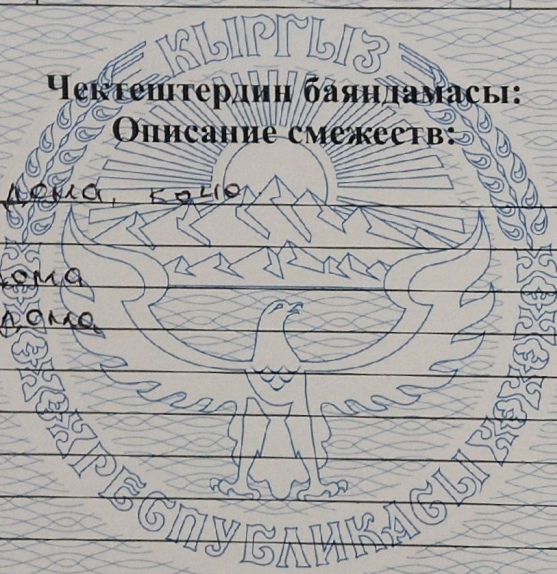 КЫРГЫЗ
Чектештердин баяндамасы:
Описание смежеств:
дома, көчө
дома
дома
РЕСПУБЛИКАСЫ